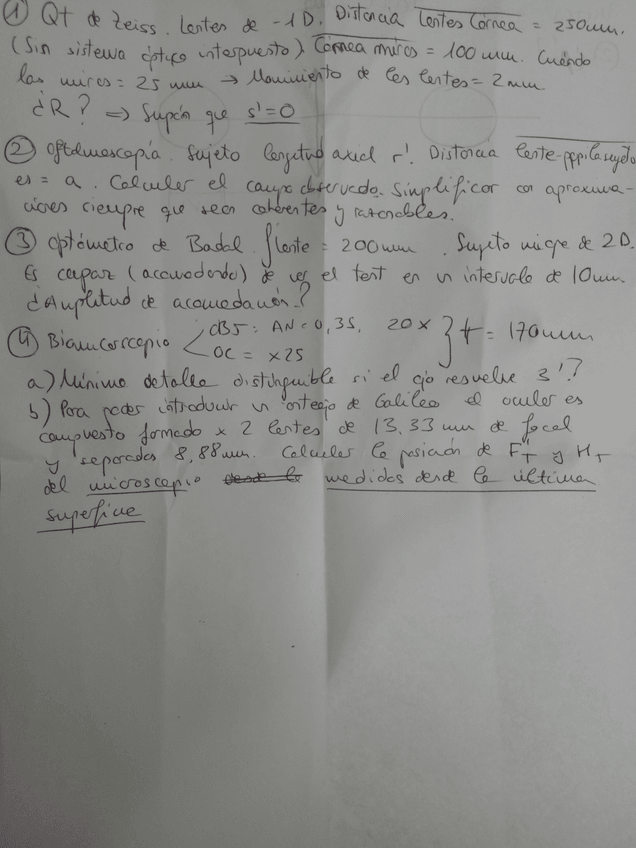 ① Qt de Zeiss. Lentes de -1 D. Distancia Lentes Córnea = 250mm.
(Sin sistema óptico interpuesto) Córnea miras = 100 mm. Cuándo
las miras = 25 mm → Movimiento de las lentes = 2mm
¿R? ⇒ Supón que s' = 0
② Oftalmoscopía. Sujeto longitud axial r'. Distancia lente-pupila sujeto
es = a. Calcular el campo observado. Simplificar con aproxima-
ciones siempre que sean coherentes y razonables.
③ Optómetro de Badal. f lente = 200mm. Sujeto miope de 2D.
Es capaz (acomodando) de ver el test en un intervalo de 10mm.
¿Amplitud de acomodación?
④ Biomicroscopio OBJ: AN = 0,35, 20x } t = 170mm
OC = x25
a) Mínimo detalle distinguible si el ojo resuelve 3'?
b) Para poder introducir un anteojo de Galileo el ocular es
compuesto formado x 2 lentes de 13.33 mm de focal
y separadas 8,88mm. Calcular la posición de F'T y H'T
del microscopio desde la medidas desde la última
superficie